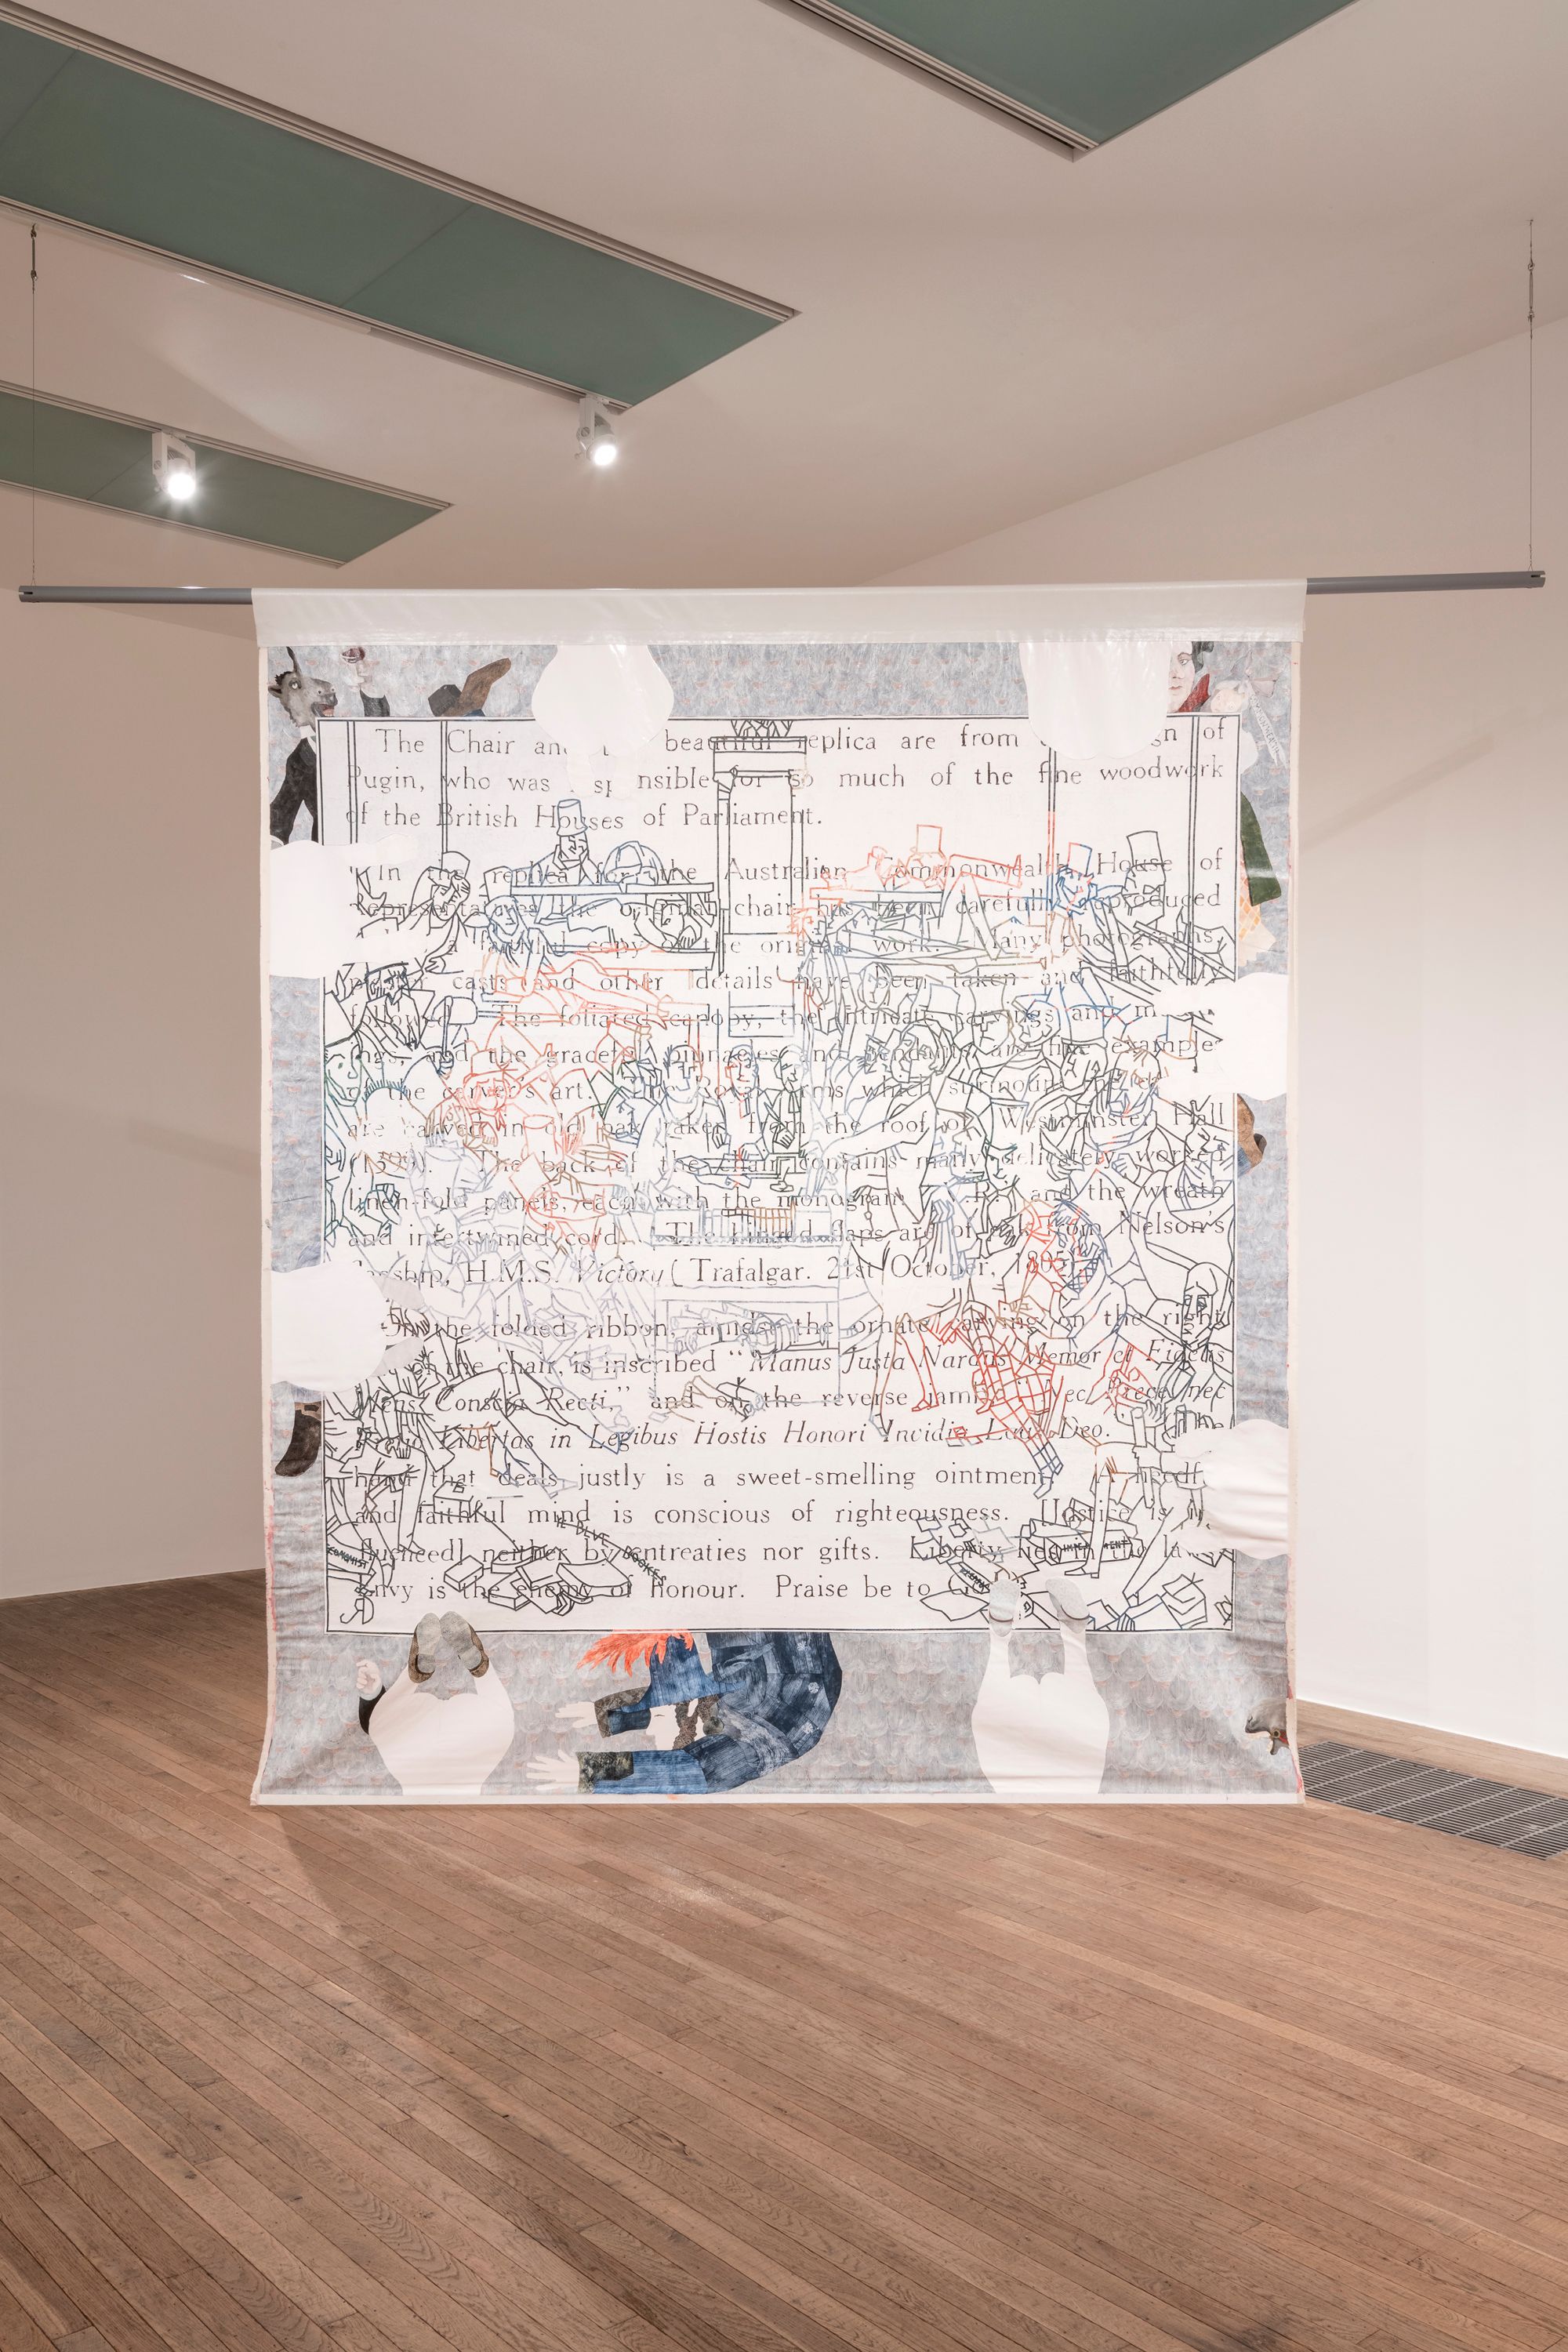 The Chair and beautiful replica are from of
Pugin, who was sp nsible for so much of the fine woodwork
of the British Houses of Parliament.
"In the replica for the Australian Commonwealth House of
Representatives the original chair has been carefully reproduced
a faithful copy of the original work. Many photographs,
casts and other details have been taken and faithfully
followed. The foliated canopy, the intricate carvings and m
ings, and the graceful pinnacles and pendants are fine example
of the carver's art. The Royal Arms which surmount the
are carved in old oak taken from the roof of Westminster Hall
(1399). The back of the chair contains many delicately worked
linen-fold panels, each with the monogram and the wreath
and intertwined cord. The hinged flaps are of oak from Nelson's
flagship, H.M.S. Victory (Trafalgar. 21st October, 1805).
On the folded ribbon, amidst the ornate carving on the right
of the chair, is inscribed "Manus Justa Nardus Memor et Fidelis
Mens Conscia Recti," and on the reverse jamb "Nec Prece nec
Libertas in Legibus Hostis Honori Invidia Laus Deo." [The
hand that deals justly is a sweet-smelling ointment. A
and faithful mind is conscious of righteousness. [Justice is
neither by entreaties nor gifts. Liberty lies in the laws
Envy is the enemy of honour. Praise be to